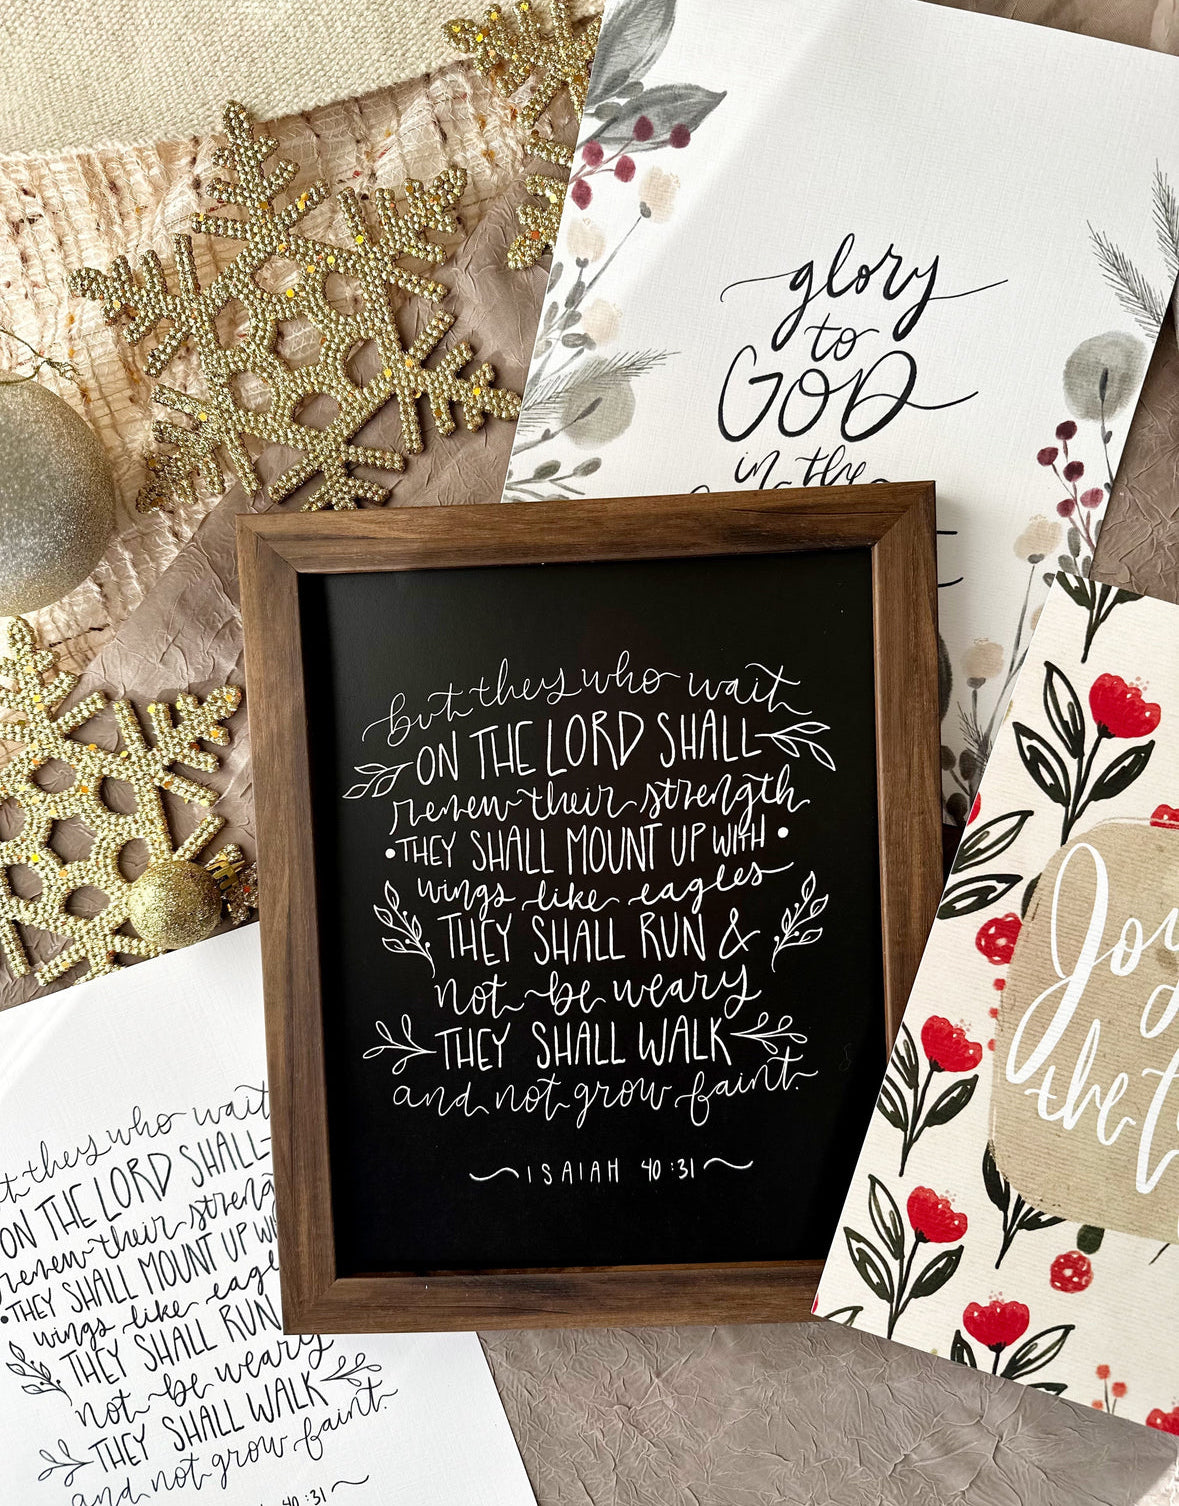 glory
to
GOD
in the
but they who wait
ON THE LORD SHALL
renew their strength
•THEY SHALL MOUNT UP WITH•
wings like eagles
THEY SHALL RUN &
not be weary
THEY SHALL WALK
and not grow faint.
~ISAIAH 40:31~
Joy
the
they who wait
ON THE LORD SHALL
renew their
•THEY SHALL MOUNT UP
wings like
THEY SHALL RUN
not be weary
THEY SHALL WALK
and not grow faint.
40:31~